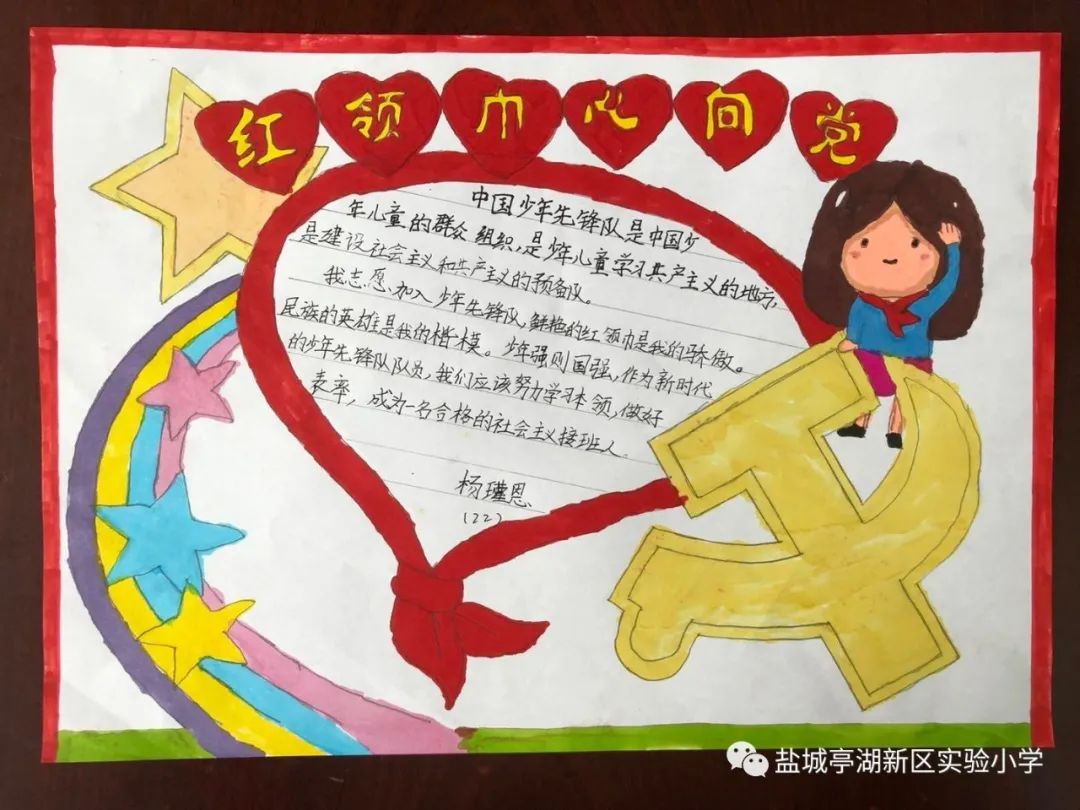 红领巾心向党
中国少年先锋队是中国少
年儿童的群众组织，是少年儿童学习共产主义的地方，
是建设社会主义和共产主义的预备队。
我志愿加入少年先锋队，鲜艳的红领巾是我的骄傲。
民族的英雄是我的楷模。少年强则国强，作为新时代
的少年先锋队队员，我们应该努力学习本领，做好
表率，成为一名合格的社会主义接班人。
杨瑾恩
(22)
盐城亭湖新区实验小学